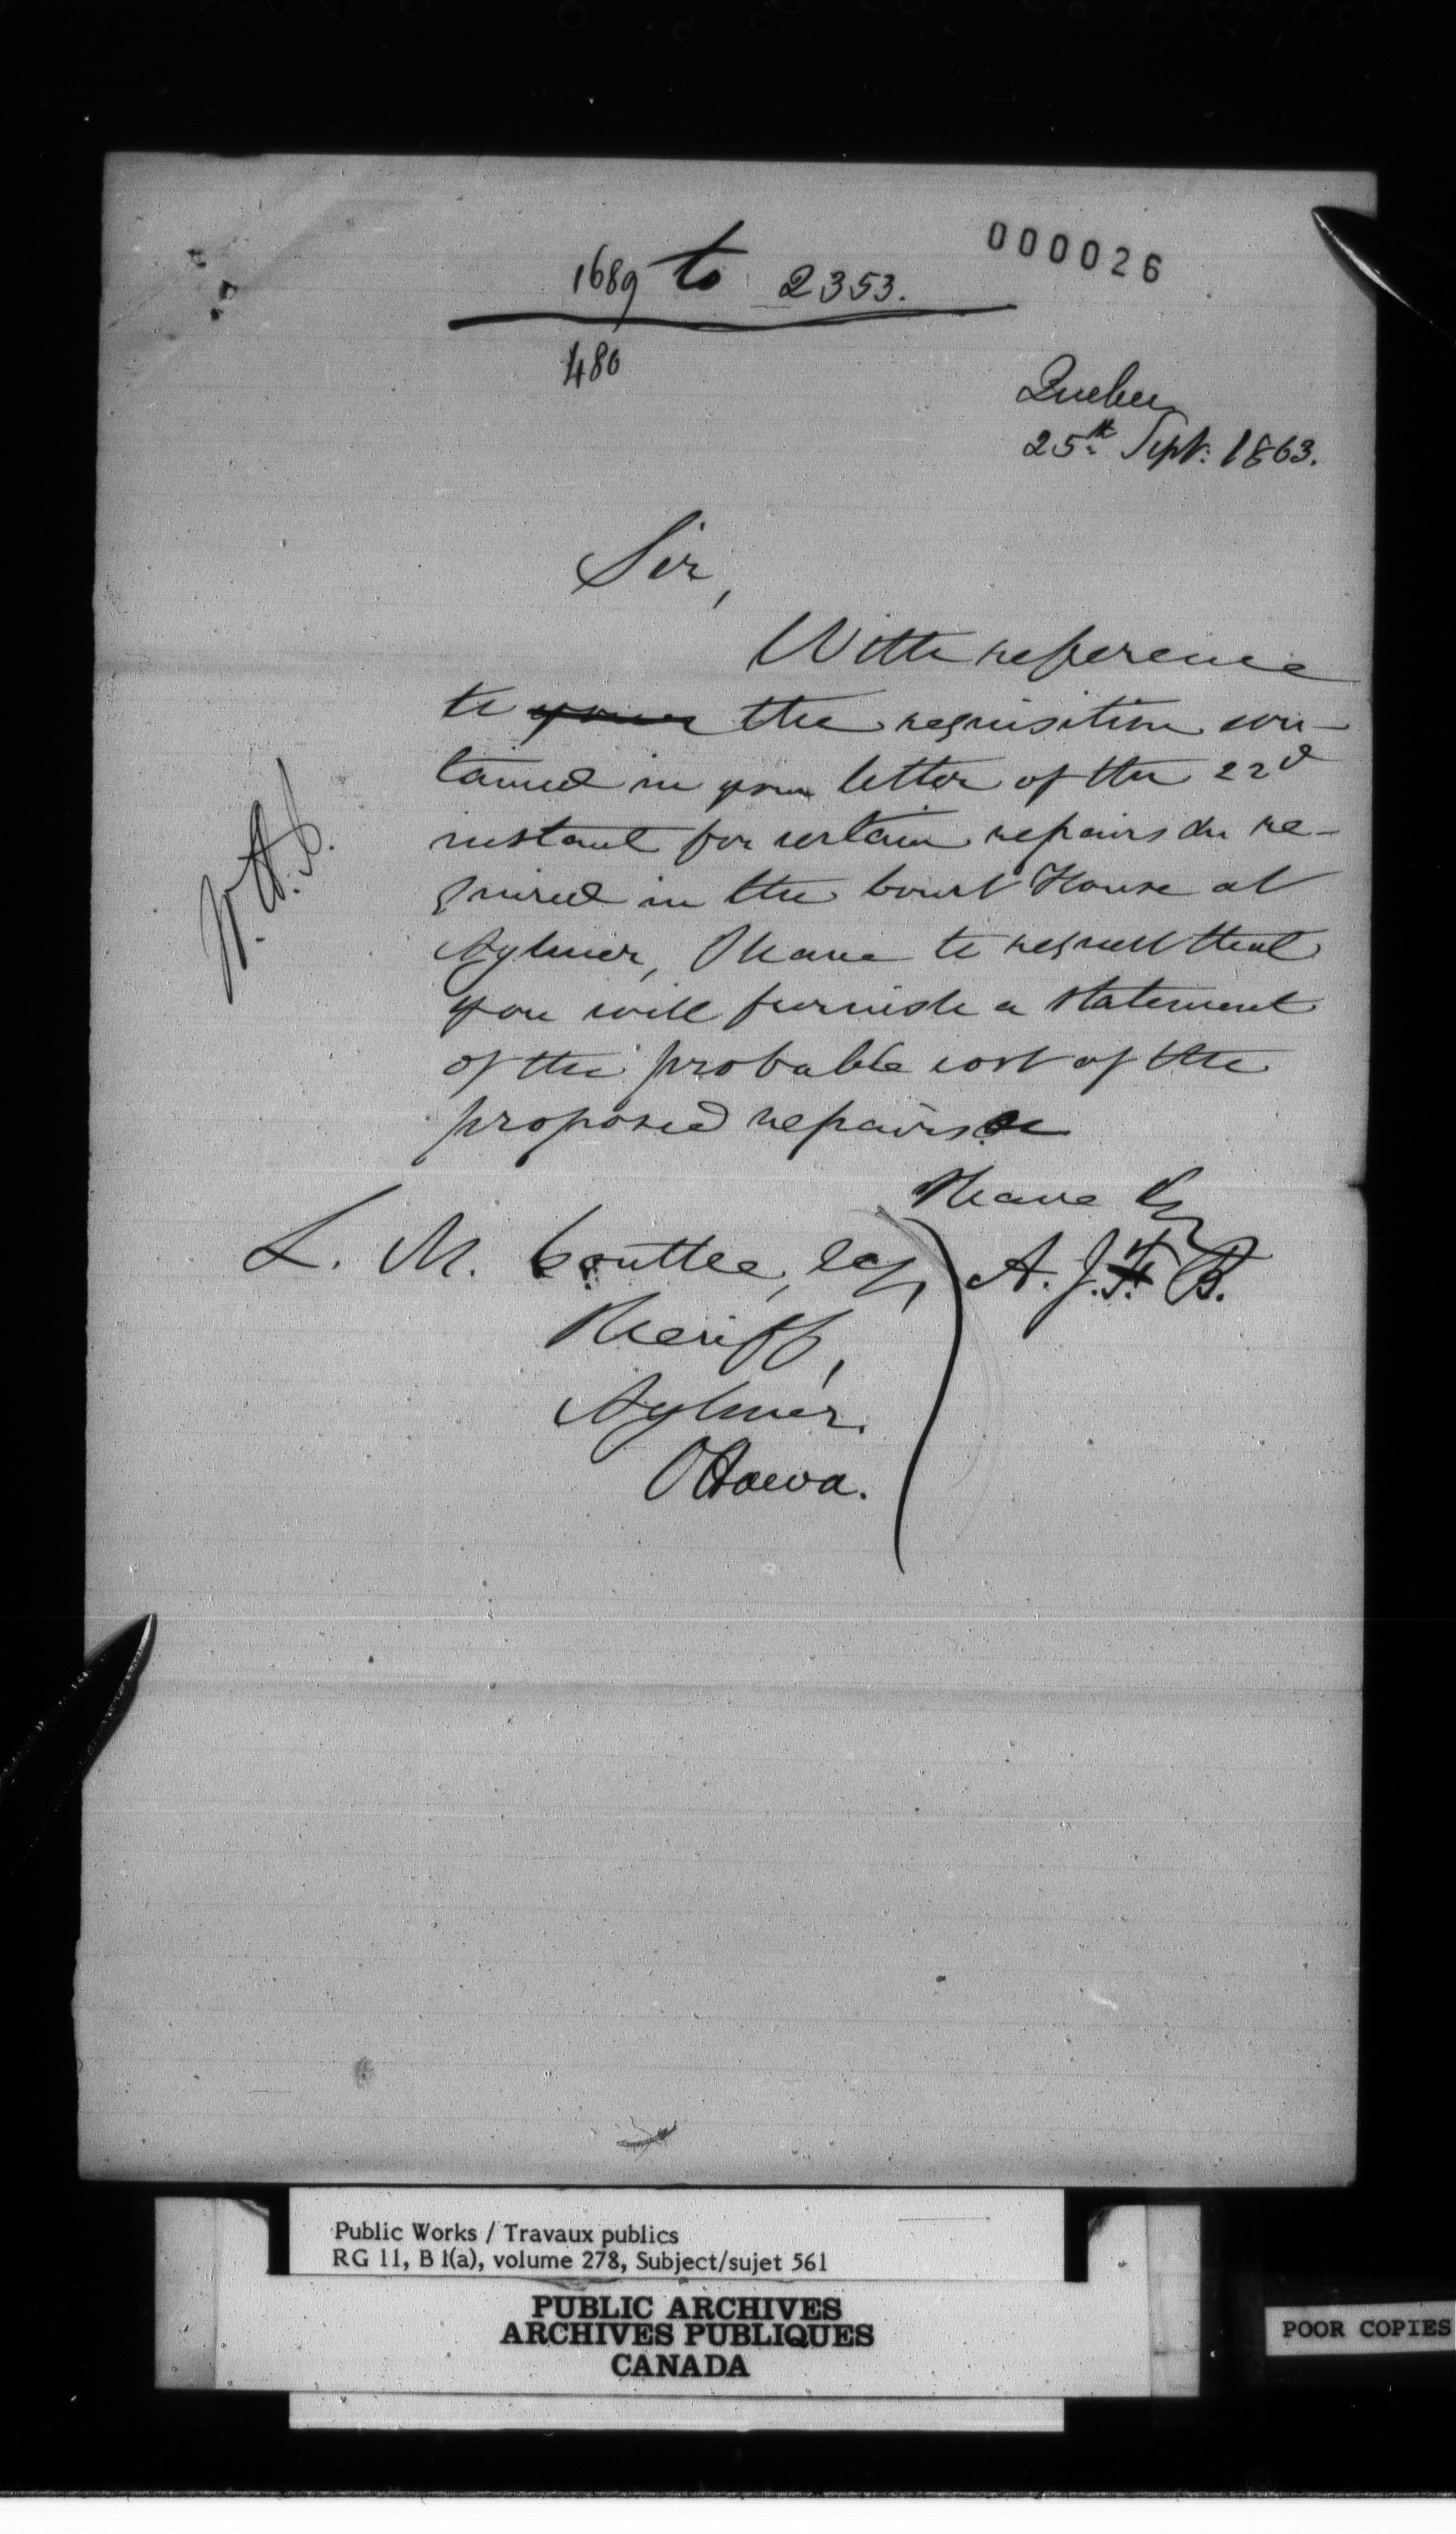 000026
1689 to 2353.
480
Quebec
25th Sept: 1863.
Sir,
With reference
to the requisition con-
tained in your letter of the 22d
instant for certain repairs re-
quired in the Court House at
Aylmer, I have to request that
you will furnish a statement
of the probable cost of the
proposed repairs.
I have &c
L. M. Couttee, Esq,
A. J. F. B.
Sheriff,
Aylmer.
Ottawa.
Public Works / Travaux publics
RG 11, B 1(a), volume 278, Subject/sujet 561
PUBLIC ARCHIVES
ARCHIVES PUBLIQUES
CANADA
POOR COPIES